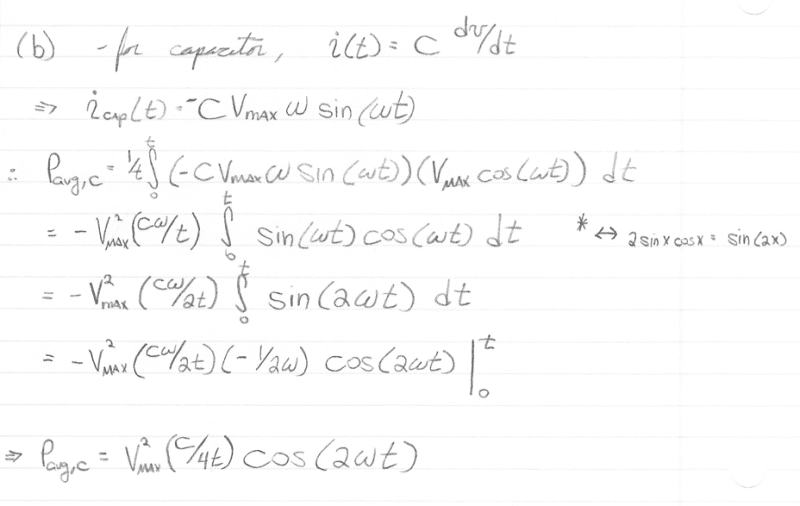 (b) - for capacitor, i(t) = C dv/dt
⇒ i_cap(t) = -C V_MAX ω sin(ωt)
∴ P_avg,c = 1/t ∫₀ᵗ (-C V_MAX ω sin(ωt))(V_MAX cos(ωt)) dt
= -V²_MAX (Cω/t) ∫₀ᵗ sin(ωt) cos(ωt) dt * ↔ 2 sin x cos x = sin(2x)
= -V²_MAX (Cω/2t) ∫₀ᵗ sin(2ωt) dt
= -V²_MAX (Cω/2t)(-1/2ω) cos(2ωt) |₀ᵗ
⇒ P_avg,c = V²_MAX (C/4t) cos(2ωt)